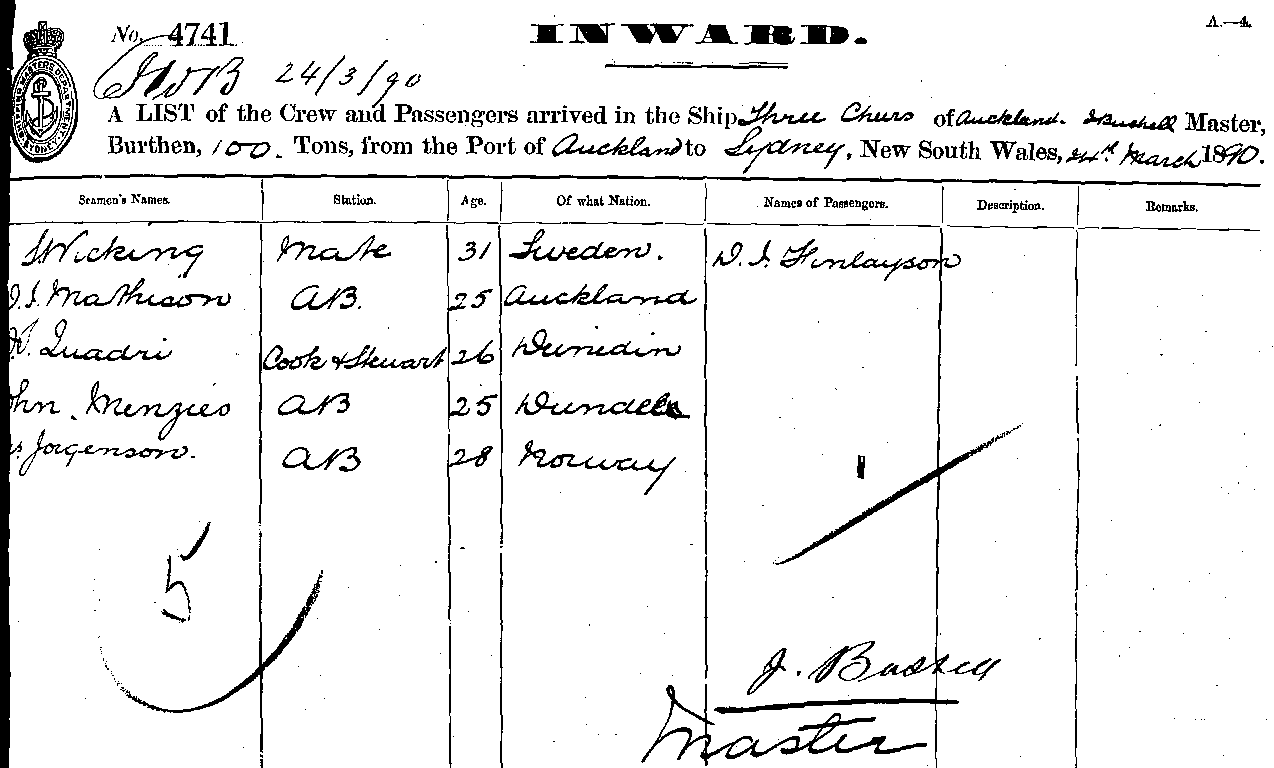 No. 4741
INWARD.
A.—4.
24/3/90
A LIST of the Crew and Passengers arrived in the Ship Three Cheers of Auckland. J Bushell Master,
Burthen, 100. Tons, from the Port of Auckland to Sydney, New South Wales, 24th March 1890.
Seamen's Names. Station. Age. Of what Nation. Names of Passengers. Description. Remarks.
Wicking Mate 31 Sweden. D. J. Finlayson
J. Mathison AB. 25 Auckland
Quadri Cook & Steward 26 Dunedin
ohn Menzies AB 25 Dundee
Jorgenson. AB 28 Norway
1
5
J. Bushell
Master